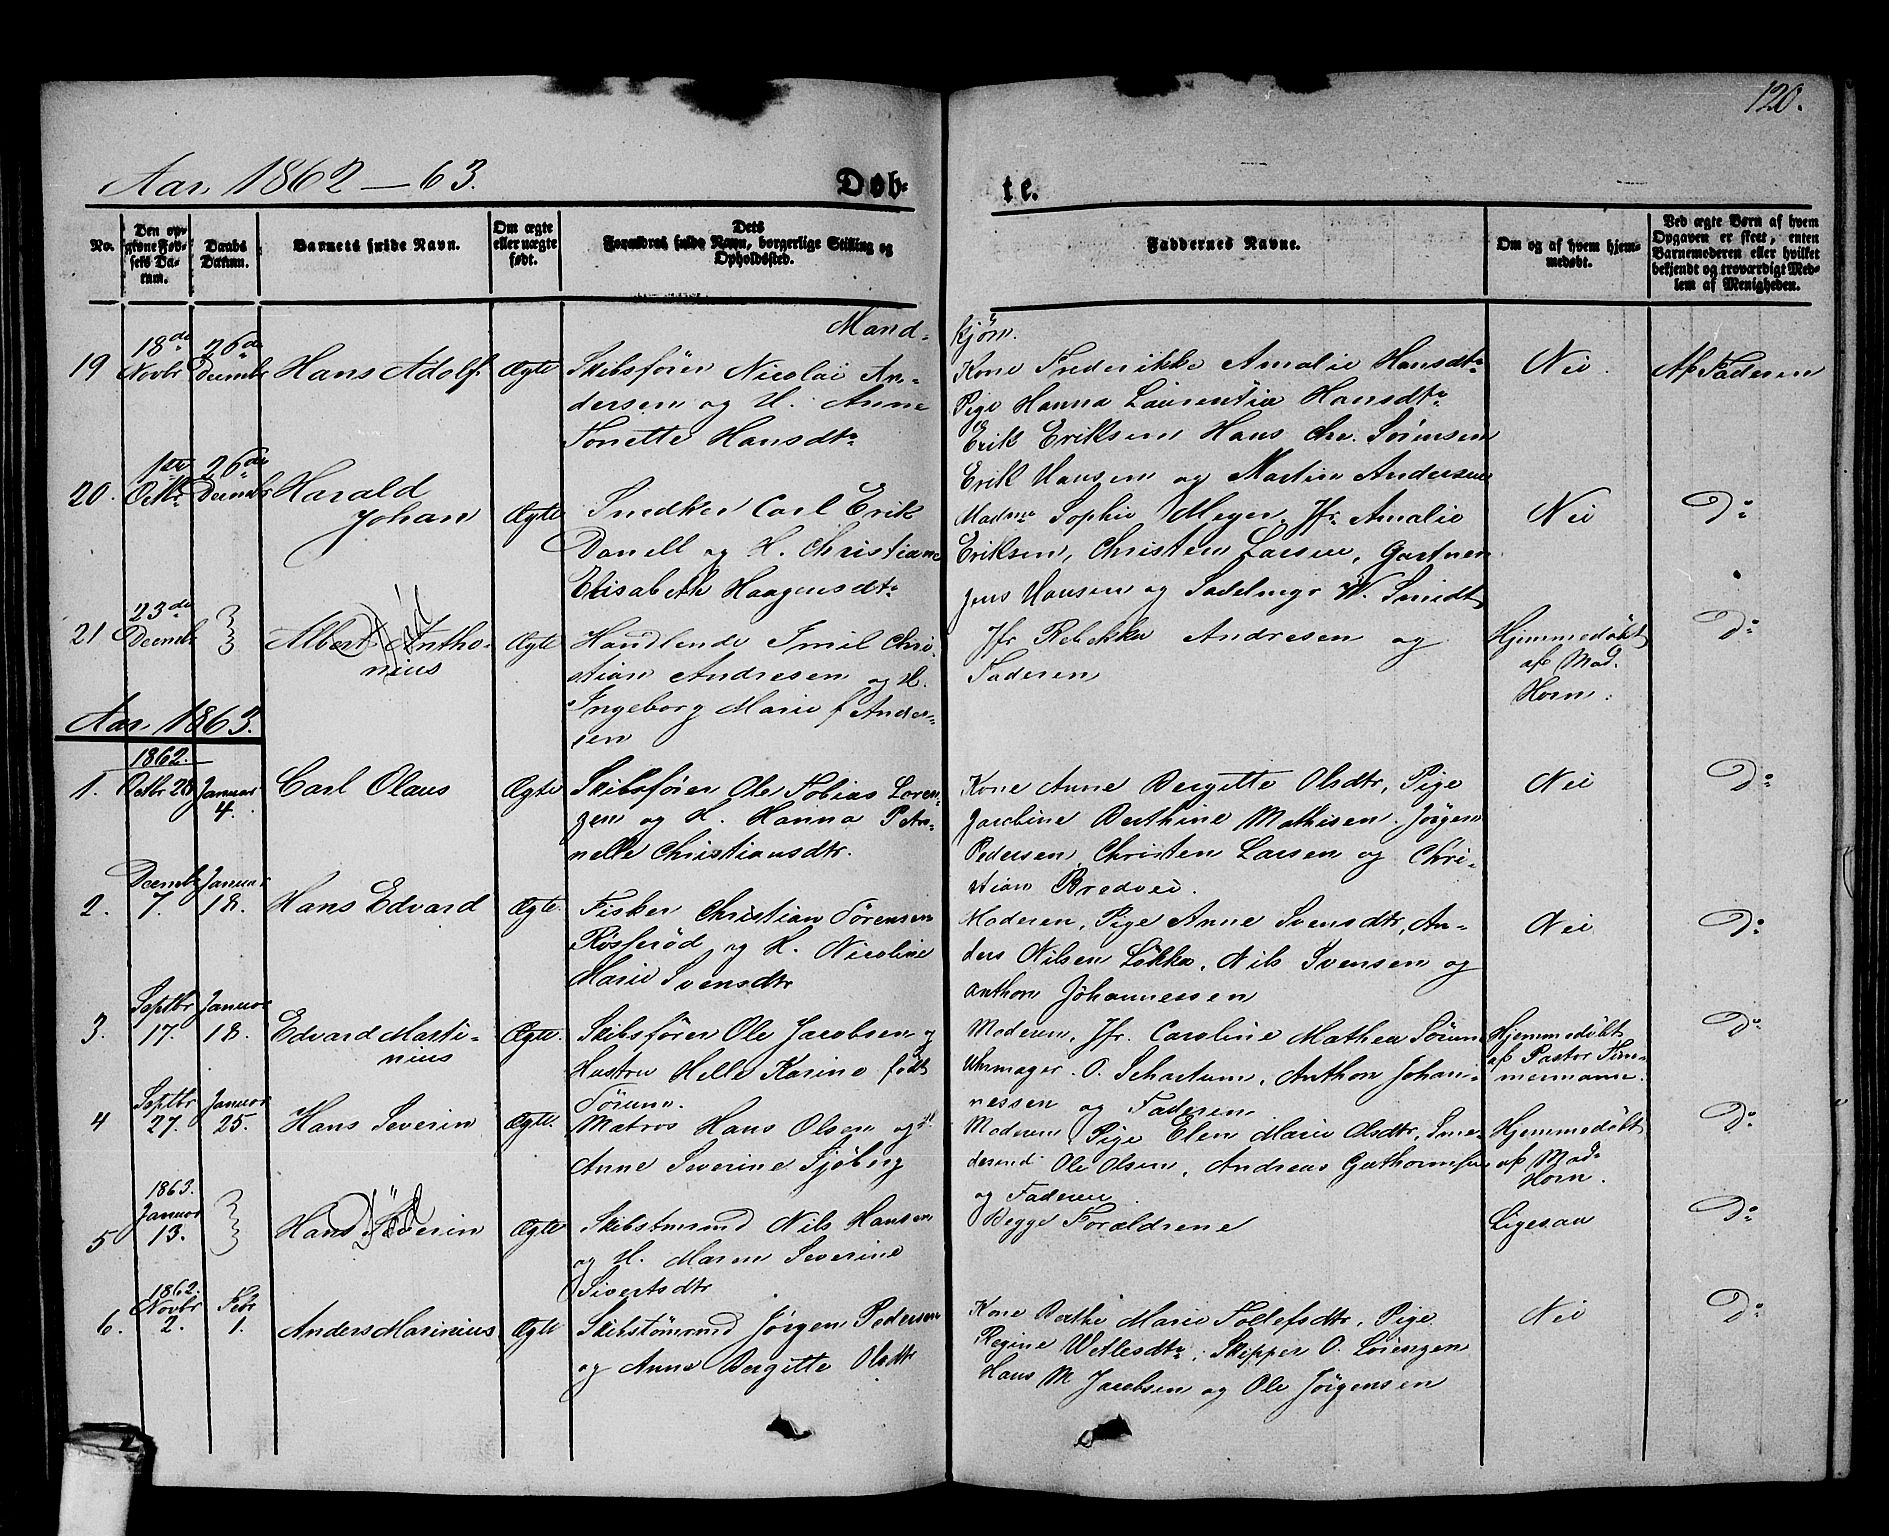 120.
Aar 1862–63.
Døb-
te.
No.
Den op-
givne Fød-
sels Da-
tum.
Daabs
Datum.
Barnets fulde Navn.
Om ægte
eller uægte
født.
Dets
Forældres fulde Navn, borgerlige Stilling og
Opholdssted.
Faddernes Navne.
Om og af hvem hjem-
medøbt.
Ved ægte Børn af hvem
Opgaven er skeet, enten
Barnemoderen eller hvilket
bekjendt og troværdigt Med-
lem af Menigheden.
Mand-
kjøn.
19
18de
Novbr
26de
Decembr
Hans Adolf
Ægte
Skibsfører Nicolai An-
dersen og H. Anne
Tonette Hansdtr
Kone Frederikke Amalie Hansdtr
Pige Hanna Laurentia Hansdtr
Erik Eriksen Hans Chr. Sørensen
Erik Hansen og Martin Andersen
Nei.
Af Faderen
20.
1ste
Octbr
26de
Decembr
Harald
Johan
Ægte
Snedker Carl Erik
Danell og H. Christiane
Elisabeth Haagensdtr
Madme Sophie Meyer, Jfr Amalie
Eriksen, Christen Larsen, Gartner
Jens Hansen og Sadelmgr W. Smidt
Nei
Do
21
23de
Decembr
Albert Antho-
nius
Død
Ægte
Handlende Emil Chri-
stian Andresen og H.
Ingeborg Marie f Ander-
sen
Jfr Rebekka Andresen og
Faderen
Hjemmedøbt
af Mad.
Horn.
Do
Aar 1863.
1.
1862.
Octbr 28
Januar
4.
Carl Olaus
Ægte
Skibsfører Ole Tobias Loren-
zen og H. Hanna Petro-
nelle Christiansdtr.
Kone Anne Bergitte Olsdtr, Pige
Jacobine Berthine Mathisen. Jørgen
Pedersen, Christen Larsen og Chri-
stian Bredvei.
Nei
Do
2.
Decembr
7.
Januar
18.
Hans Edvard
Ægte.
Fisker Christian Sørensen
Røsserød og H. Nicoline
Marie Svensdtr
Moderen, Pige Anne Svensdtr, An-
ders Nilsen Løkke, Nils Svensen og
Anthon Johannessen
Nei
Do
3.
Septbr
17.
Januar
18.
Edvard Marti-
nius
Ægte.
Skibsfører Ole Jacobsen og
Hustru Helle Karine født
Sørum.
Moderen, Jfr. Caroline Mathea Sørum
Uhrmager O. Schartum, Anthon Johan-
nessen og Faderen
Hjemmedøbt
af Pastor Tim-
mermann.
Do
4
Septbr
27.
Januar
25.
Hans Severin
Ægte.
Matros Hans Olsen og H.
Anne Severine Sjøberg
Moderen, Pige Elen Marie Olsdtr, Sme-
desvend Ole Olsen, Andreas Guthormsen
og Faderen
Hjemmedøbt
af Mad.
Horn.
Do
5
1863.
Januar
13.
Hans Severin
Død
Ægte
Skibstmrmd Nils Hansen
og H. Maren Severine
Sivertsdtr
Begge Forældrene
Ligesaa
Do
6.
1862.
Novbr
2.
Febr
1.
Anders Marinius
Ægte
Skibstømrmd Jørgen Pedersen
og Anne Bergitte Olsdtr
Kone Berthe Marie Tollefsdtr, Pige
Regine Wetlesdtr, Skipper O. Lorenzen
Hans M Jacobsen og Ole Jørgensen
Nei
Do